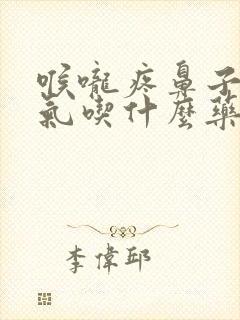 喉嚨疼鼻子
氣喫什麼藥
李偉邱